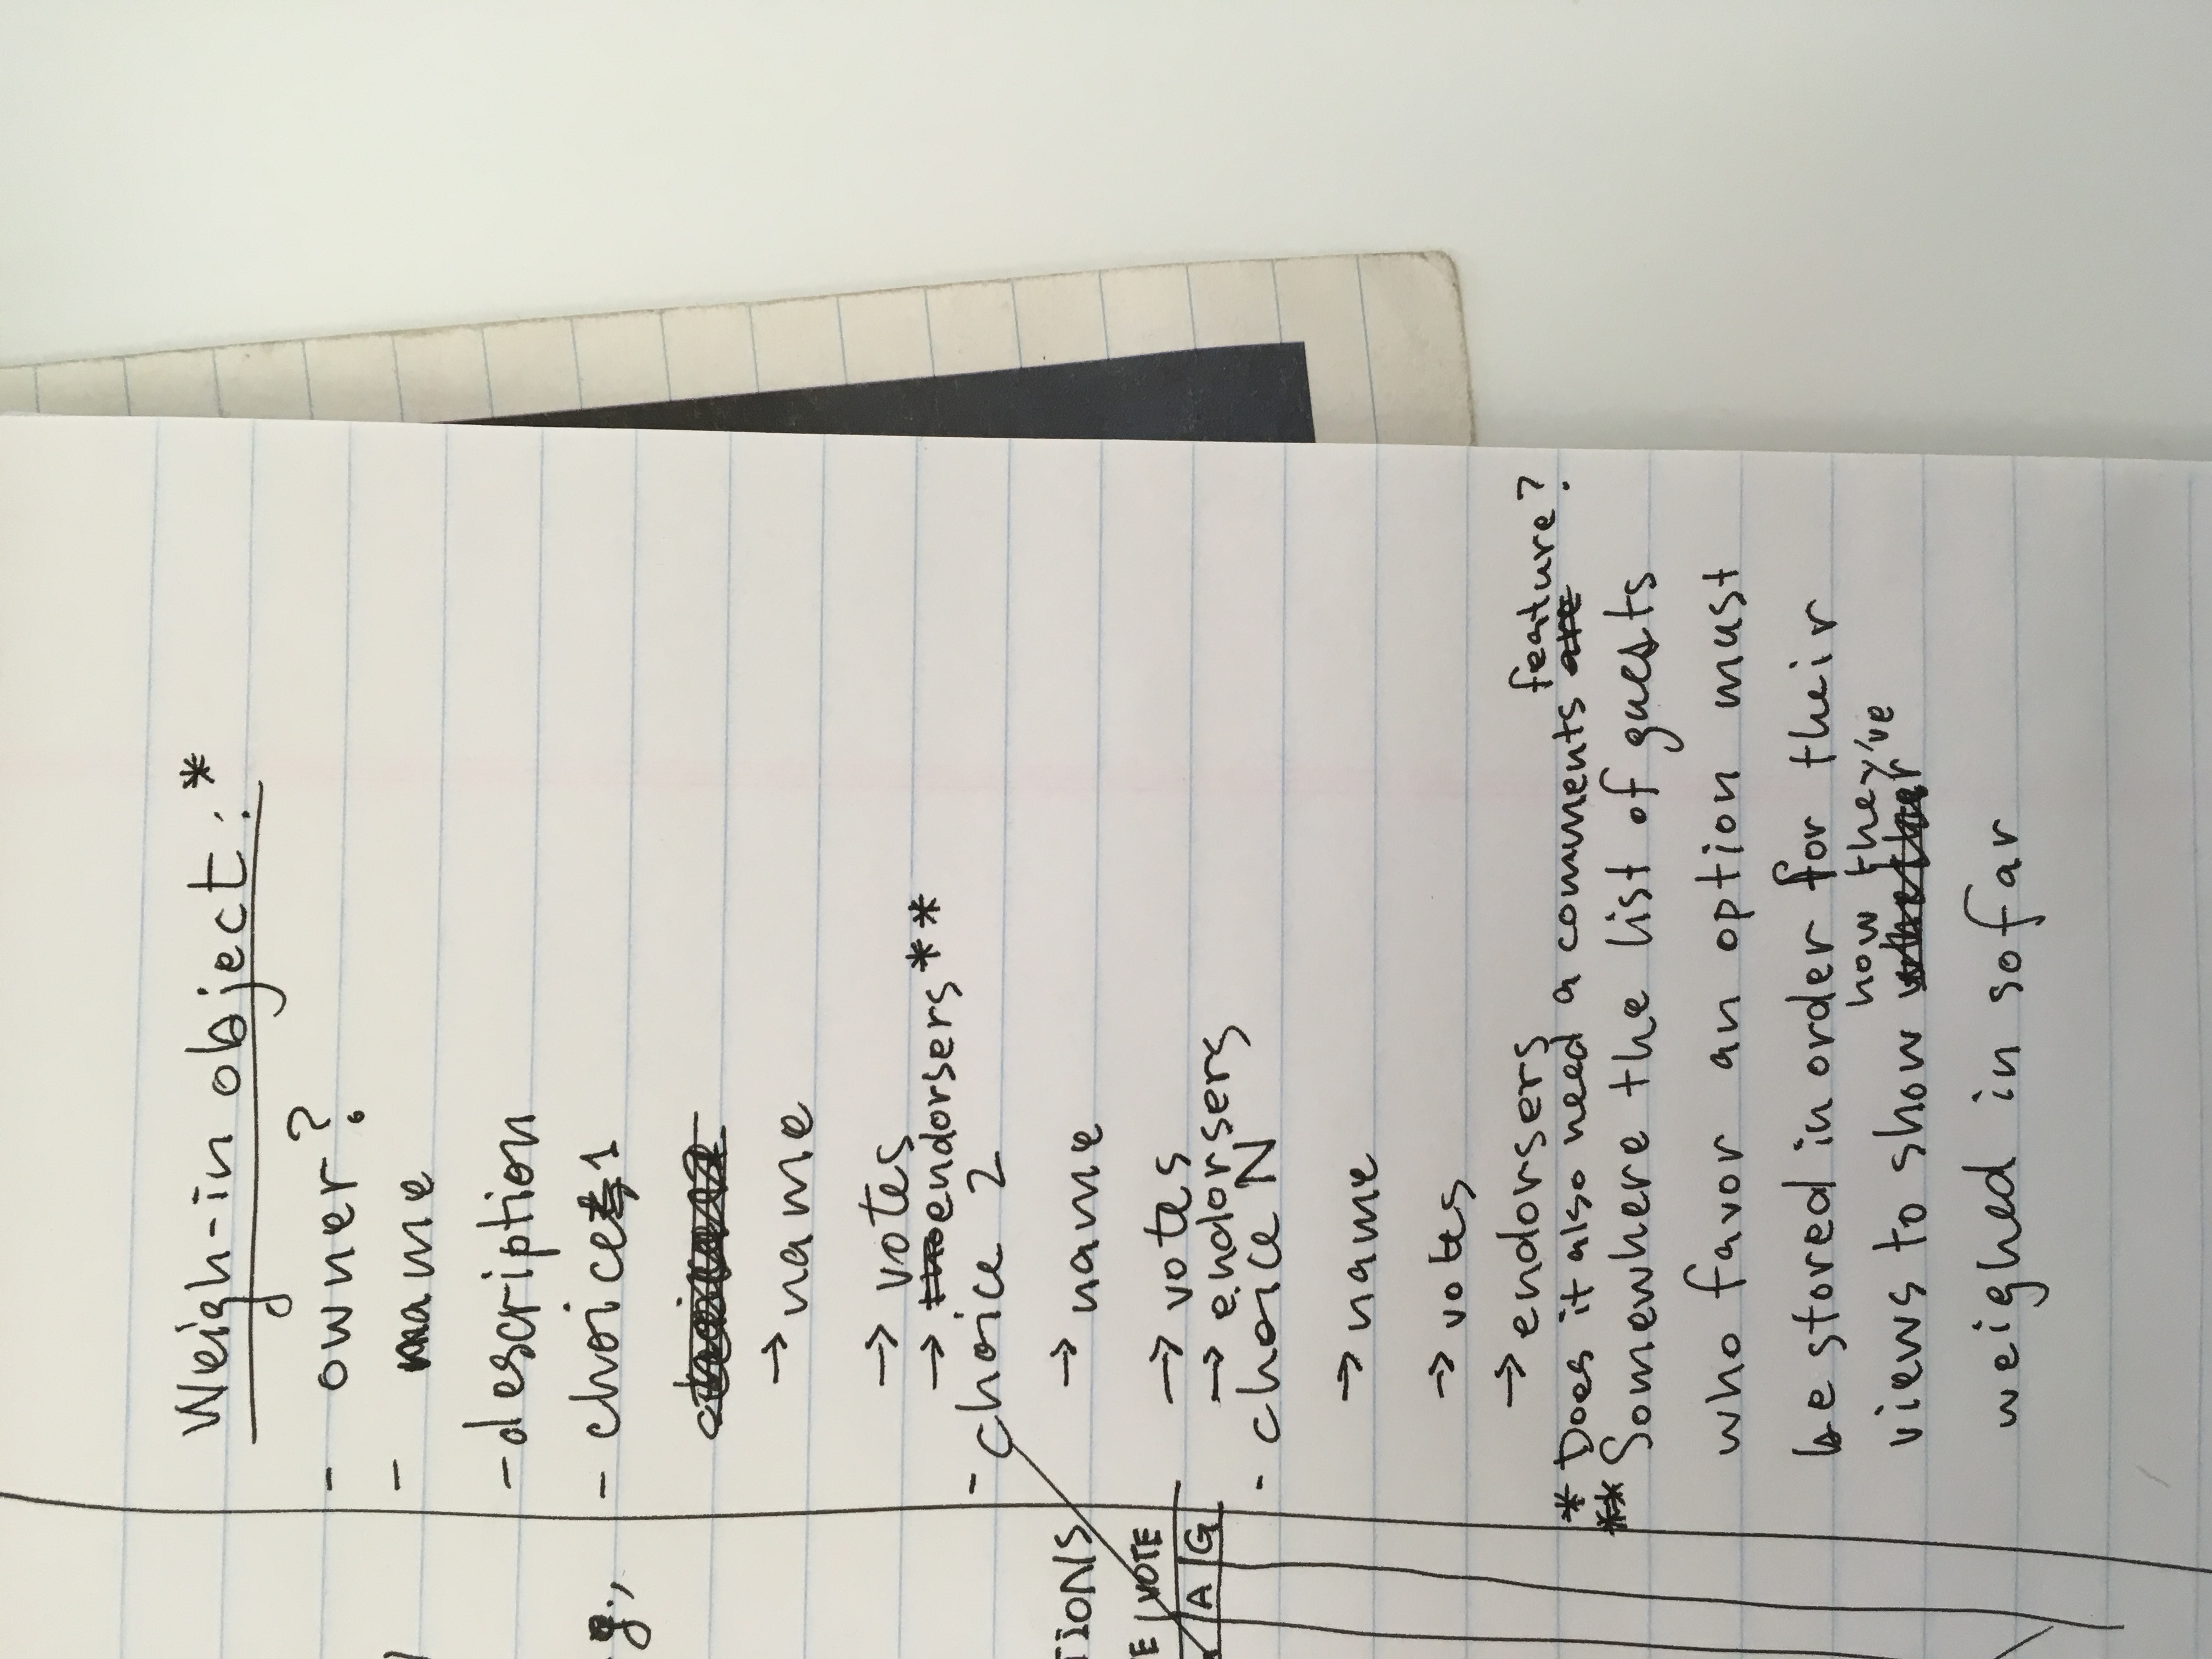 Weigh-in object:*
- owner?
- name
- description
- choice 1
→ name
→ votes
→ endorsers**
- choice 2
→ name
→ votes
→ endorsers
- choice N
→ name
→ votes
→ endorsers
* Does it also need a comments feature?
** Somewhere the list of guests
who favor an option must
be stored in order for their
views to show how they've
weighed in so far
g.,
TIONS
E VOTE
A G